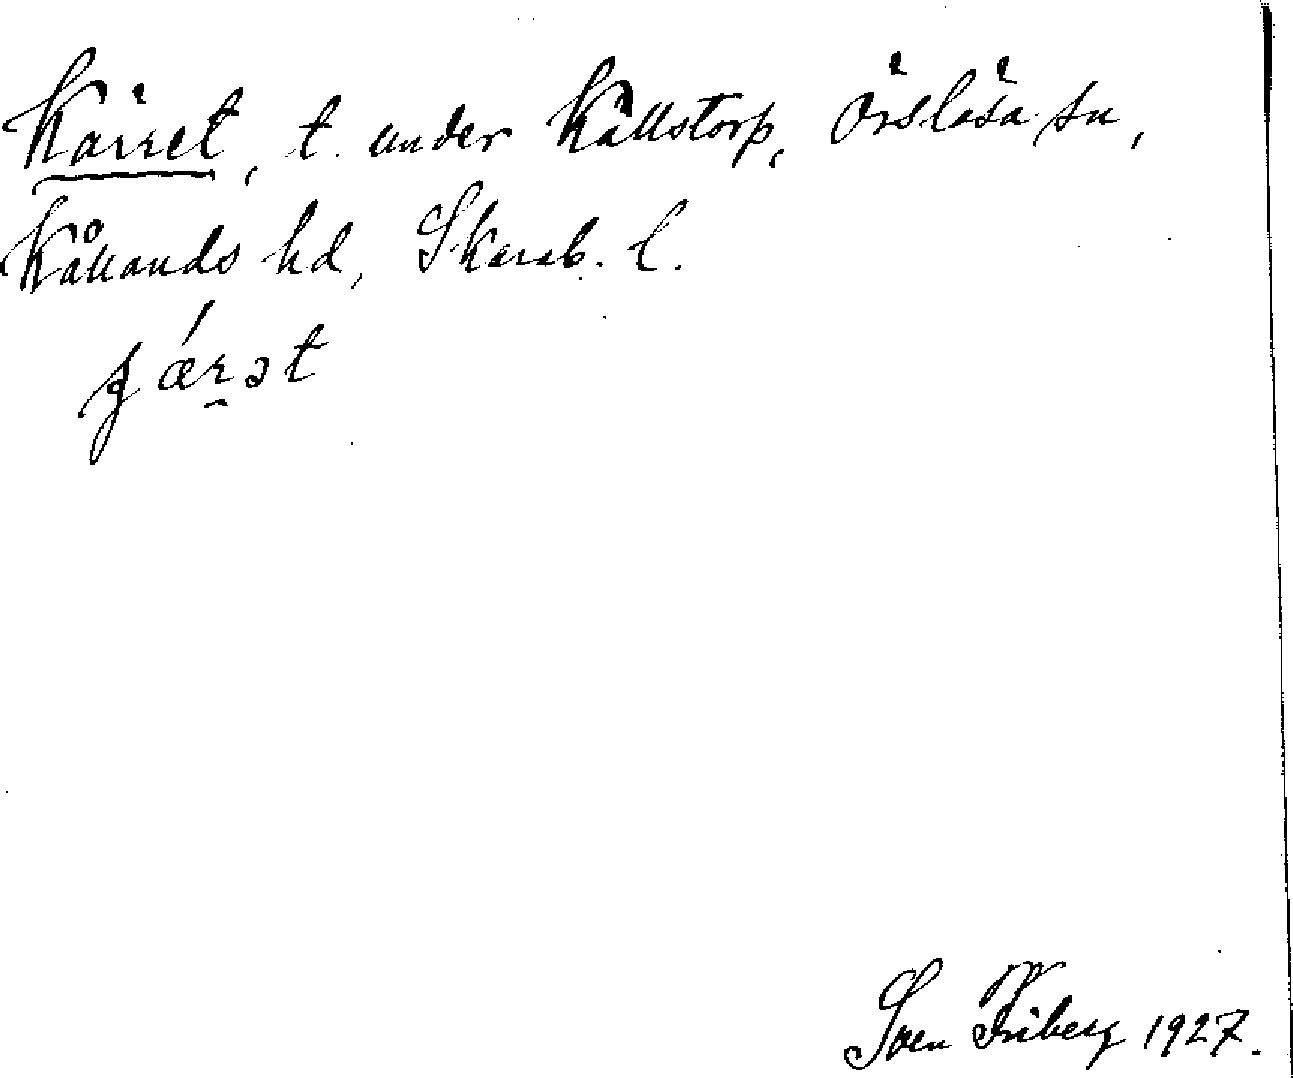 Kärret, t. under Källstorp, Örslösa sn,
Kållands hd, Skarab. l.
ʂǽrət
Sven Friberg 1927.